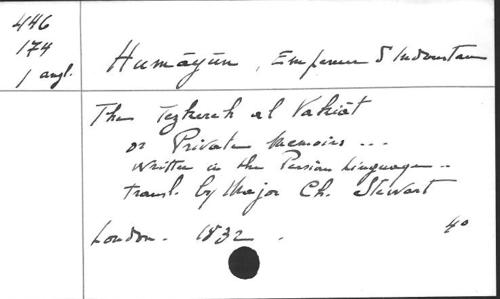 446
174
1 angl.
Humāyūn, Empereur d'Indoustan
The Tezkereh al Vakiāt
or Private Memoirs ...
Written in the Persian Language ..
transl. by Major Ch. Stewart
London. 1832.
4°